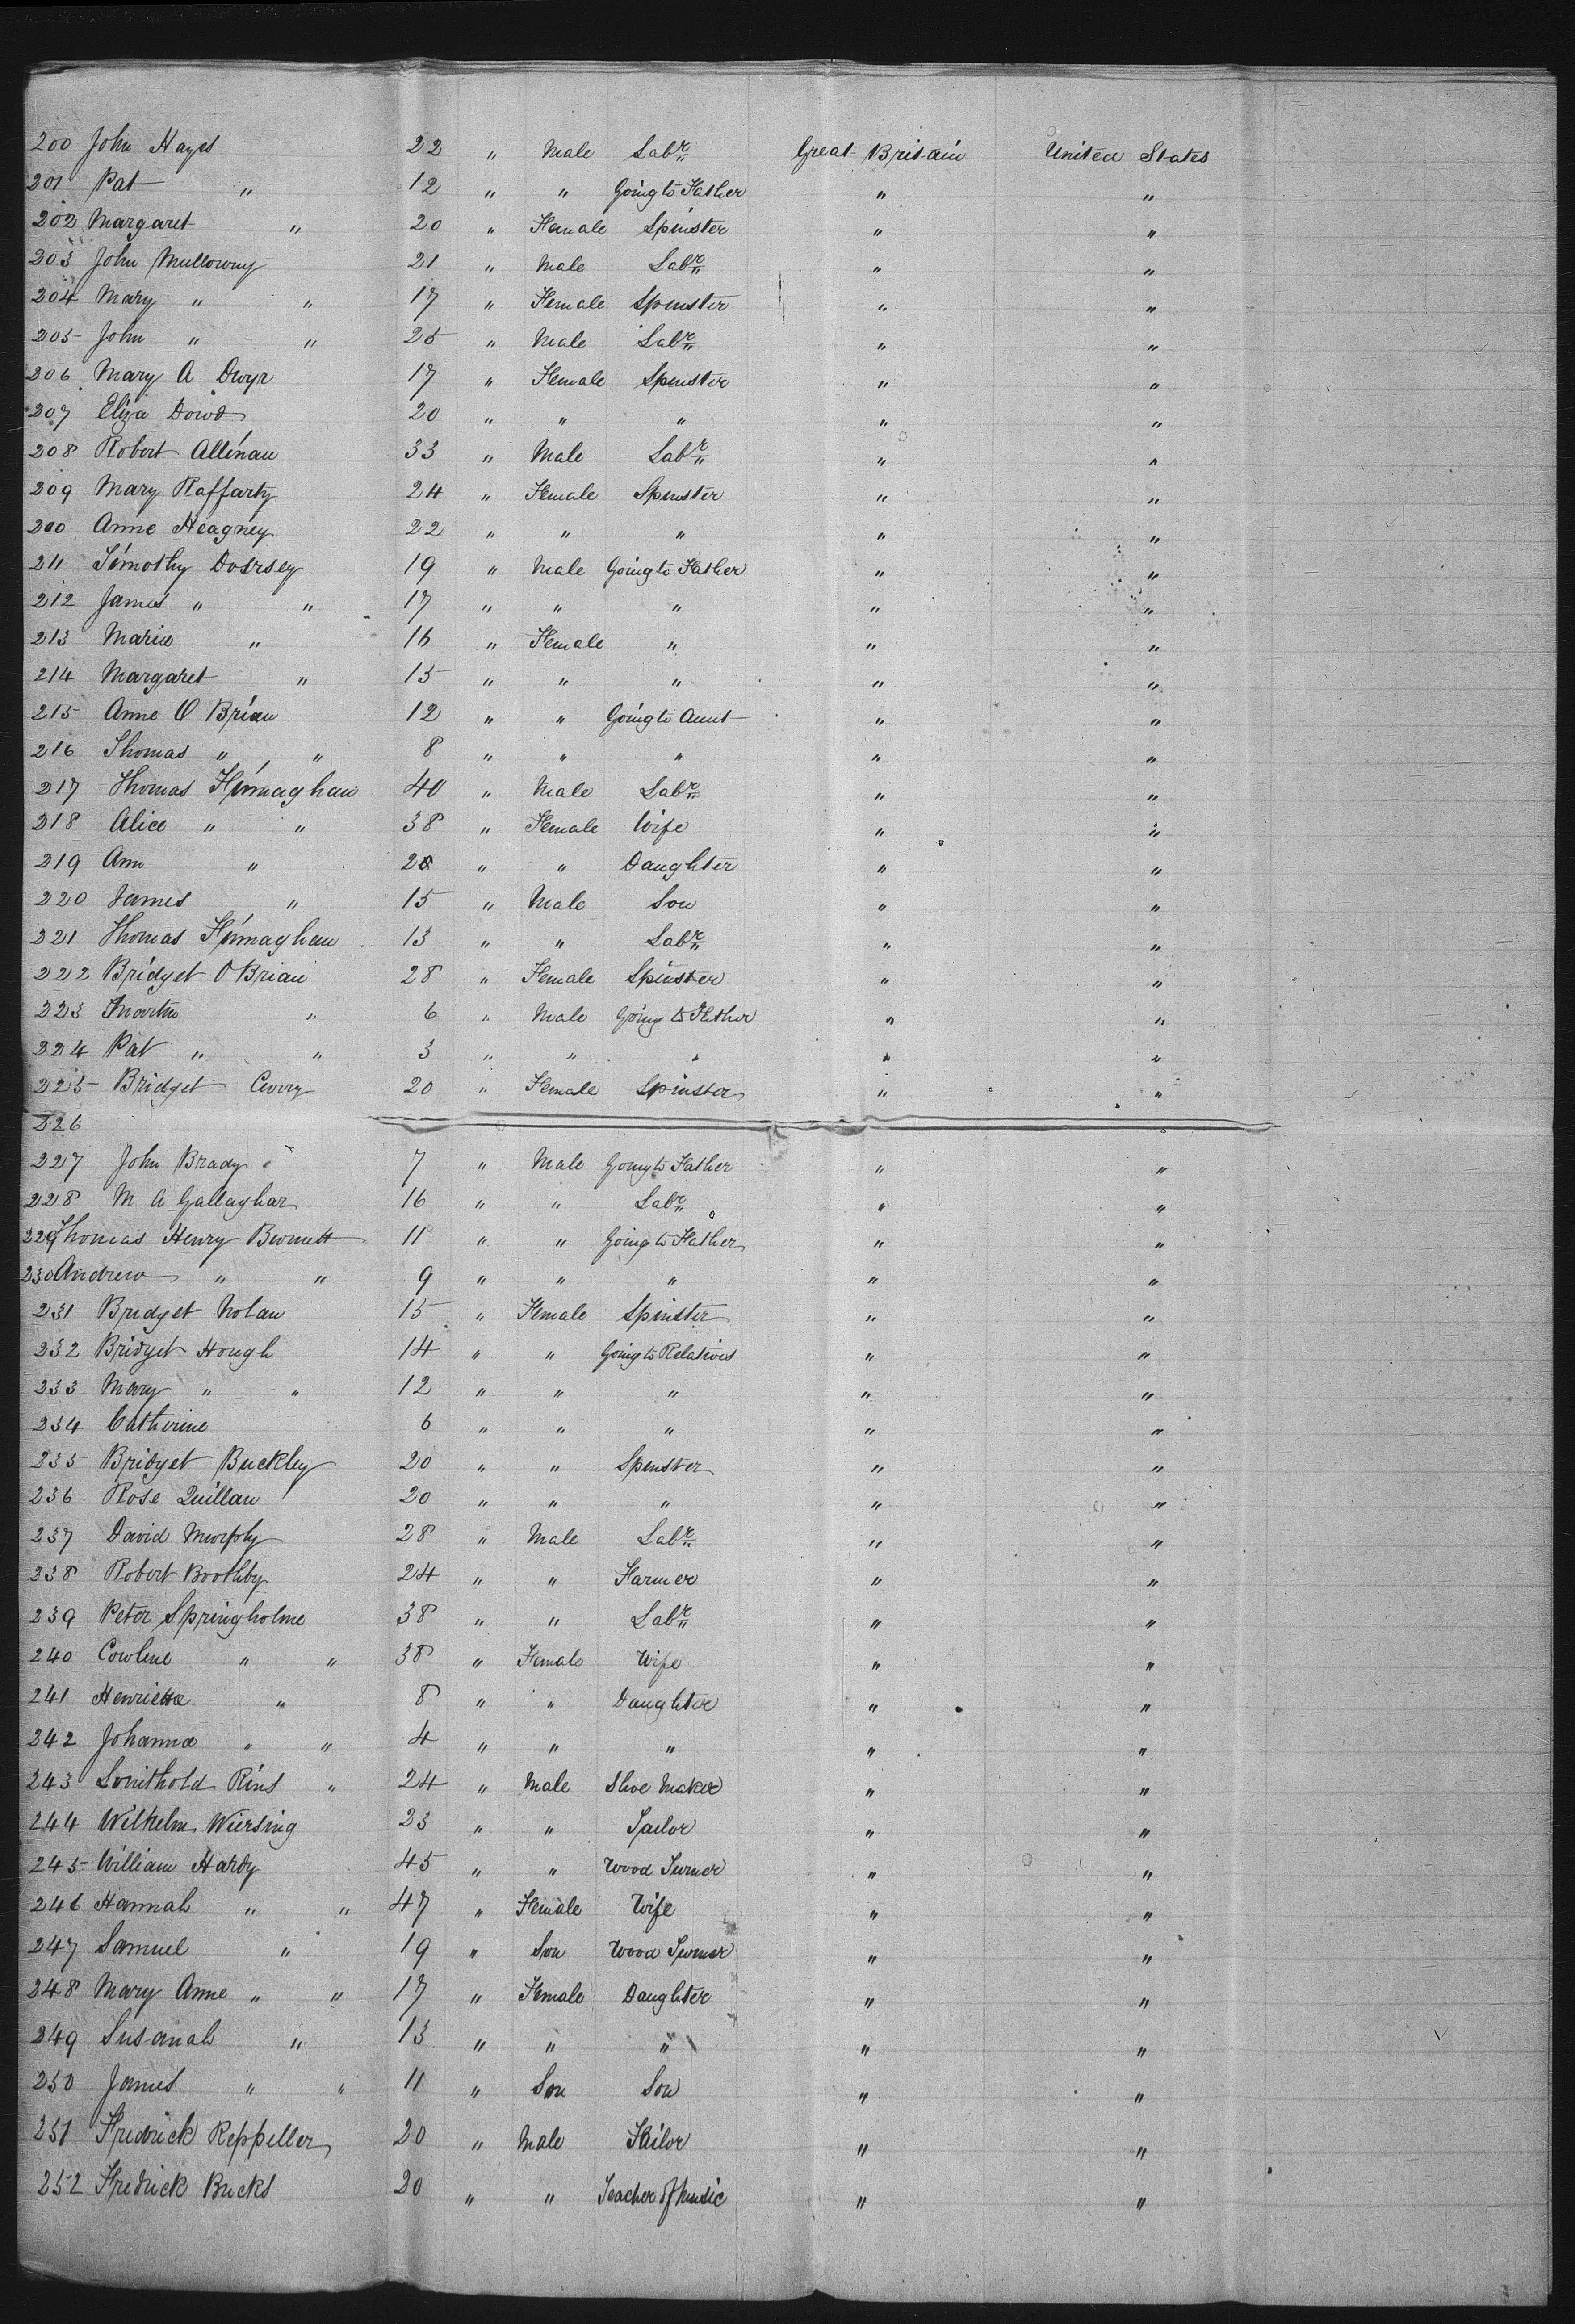 200 John Hayes 22 " Male Labr Great Britain United States
201 Pat " 12 " " Going to Father " "
202 Margaret " 20 " Female Spinster " "
203 John Mullowny 21 " Male Labr " "
204 Mary " " 17 " Female Spinster " "
205 John " " 25 " Male Labr " "
206 Mary A Dwyr 17 " Female Spinster " "
207 Eliza Dowd 20 " " " " "
208 Robert Allenan 33 " Male Labr " "
209 Mary Raffarty 24 " Female Spinster " "
200 Anne Heagney 22 " " " " "
211 Timothy Dorsey 19 " Male Going to Father " "
212 James " " 17 " " " " "
213 Maria " 16 " Female " " "
214 Margaret " 15 " " " " "
215 Anne O Brian 12 " " Going to Aunt " "
216 Thomas " " 8 " " " " "
217 Thomas Finnaghan 40 " Male Labr " "
218 Alice " " 38 " Female Wife " "
219 Ann " " " Daughter " "
220 James " 15 " Male Son " "
221 Thomas Finaghan 13 " " Labr " "
222 Bridget O Brian 28 " Female Spinster " "
223 Martin " 6 " Male Going to Father " "
224 Pat " " 3 " " " " "
225 Bridget 20 " Female Spinster " "
226
227 John Brady 7 " Male Going to Father " "
228 M A Gallaghar 16 " " Labr " "
229 Thomas Henry 11 " " Going to Father " "
230 Andrew " " 9 " " " " "
231 Bridget Nolan 15 " Female Spinster " "
232 Bridget Hough 14 " " Going to Relatives " "
233 Mary " " 12 " " " " "
234 Catherine 6 " " " " "
235 Bridget Buckley 20 " " Spinster " "
236 Rose Quillan 20 " " " " "
237 David Murphy 28 " Male Labr " "
238 Robert Boothby 24 " " Farmer " "
239 Peter Springholme 38 " " Labr " "
240 " " 38 " Female Wife " "
241 Henrietta " 8 " " Daughter " "
242 Johanna " " 4 " " " " "
243 Rins " 24 " Male Shoe Maker " "
244 Wilhelm Wiersing 23 " " Tailor " "
245 William Hardy 45 " " Wood Turner " "
246 Hannah " " 47 " Female Wife " "
247 Samuel " 19 " Son Wood Turner " "
248 Mary Anne " " 17 " Female Daughter " "
249 Susanah " 13 " " " " "
250 James " " 11 " Son Son " "
251 Fredrick Reppeller 20 " Male Tailor " "
252 Fredrick Bucks 20 " " Teacher of Music " "